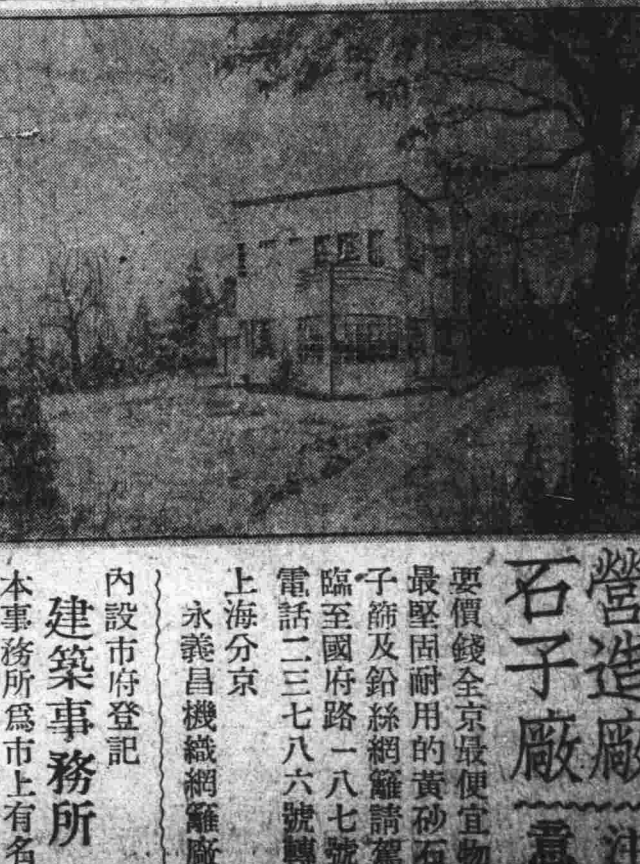 營造廠
石子廠
要價錢全京最便宜物
最堅固耐用的黃砂石
子篩及鉛絲網籬請駕
臨至國府路一八七號
電話二三七八六號轉
上海分京
永義昌機織網籬廠
內設市府登記
建築事務所
本事務所為市上有名